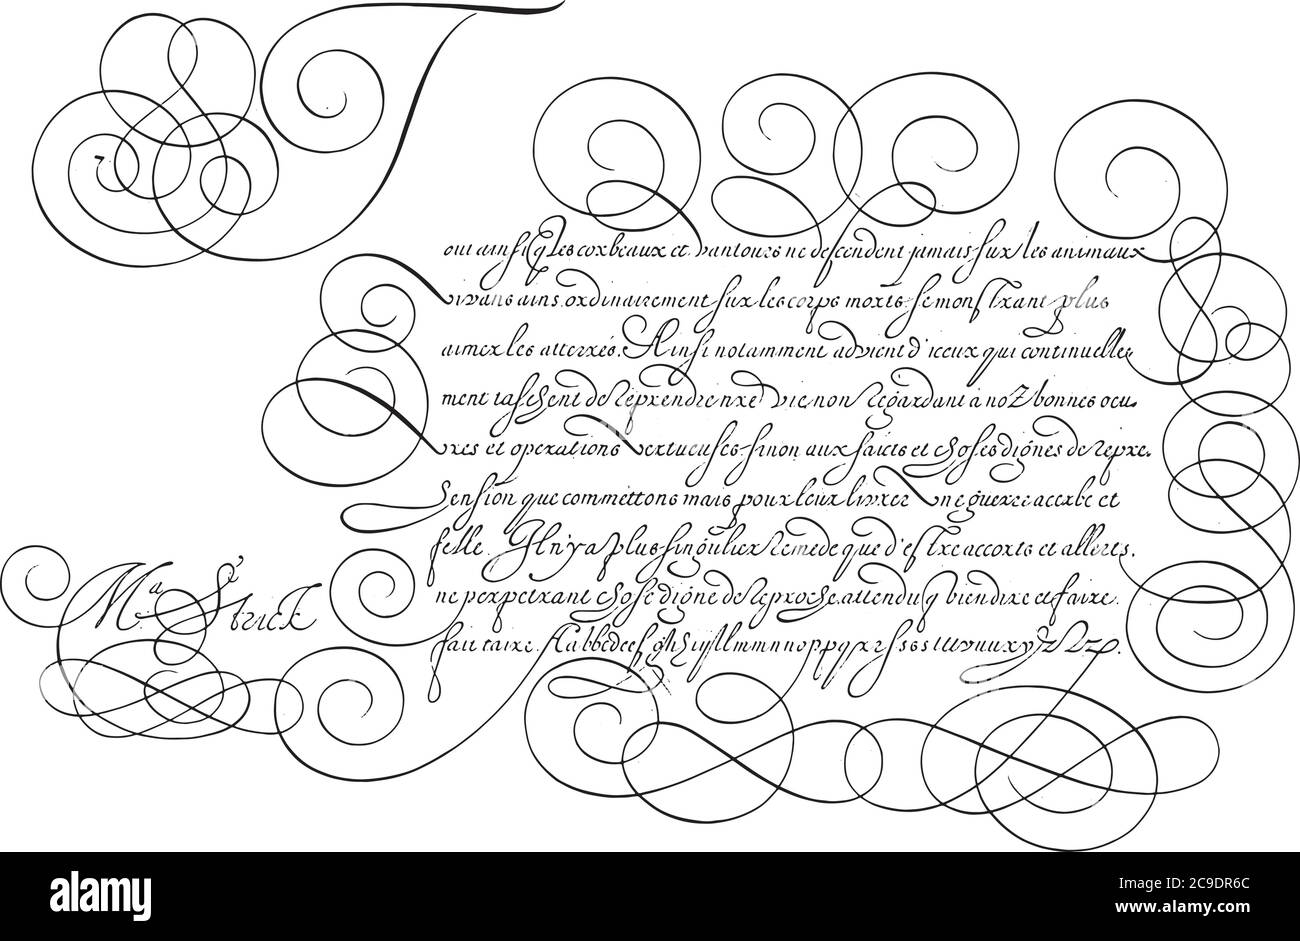 T
out ainsi q̃ les corbeaux et vautours ne descendent jamais sur les animaux
vivans ains ordinairement sur les corps morts se monstrant plus
aimer les atterrés. Ainsi notamment advient d'iceux qui continuelle
ment taschent de reprendre nr̃e vie, non regardant à noz bonnes oeu.
vres et operations vertueuses sinon aux faicts et choses dignes de repre.
sension que commettons mais pour leur livrer une guerre acerbe et
felle. Il n'y a plus singulier remede que d'estre accorts et allerts.
ne perpetrant chose digne de reproche, attendu q̃ biendire et faire.
fait taire. Aabbcdeefghiyllmmnnoppqxrsssstuvuuxyzzz&.
Ma. Strick
alamy
Image ID: 2C9DR6C
www.alamy.com